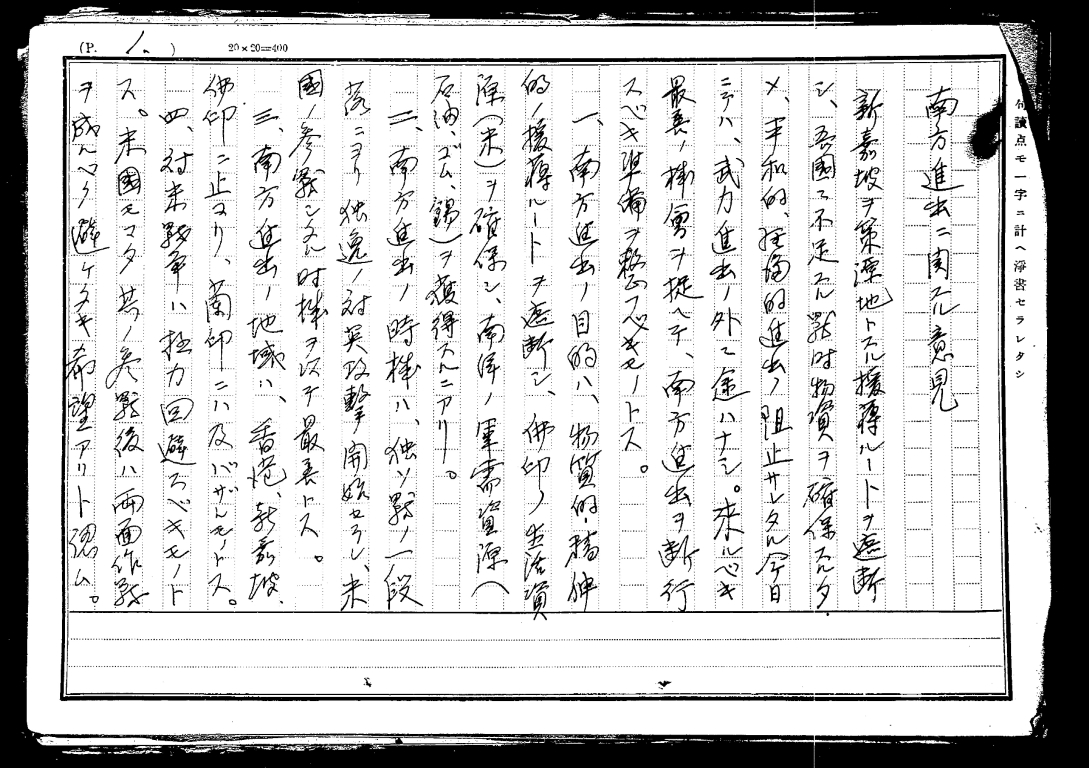 (P. 1. )
20×20=400
句讀点モ一字ニ計ヘ淨書セラレタシ
南方進出ニ関スル意見
新嘉坡ヲ策源地トスル援蒋ルートヲ遮断
シ、吾國ニ不足スル戰時物資ヲ確保スルタ
メ、平和的、経済的進出ノ阻止サレタル今日
ニテハ、武力進出ノ外ニ途ハナシ。来ルベキ
最善ノ機會ヲ捉ヘテ、南方進出ヲ断行
スベキ準備ヲ整フベキモノトス。
一、南方進出ノ目的ハ、物質的・精神
的ノ援蒋ルートヲ遮断シ、佛印ノ生活資
源(米)ヲ確保シ、南洋ノ軍需資源(
石油、ゴム、錫)ヲ獲得スルニアリ。
二、南方進出ノ時機ハ、独ソ戰ノ一段
落ニヨリ独逸ノ対英攻撃開始セラレ、米
國ノ参戰シタル時機ヲ以テ最善トス。
三、南方進出ノ地域ハ、香港、新嘉坡、
佛印ニ止マリ、蘭印ニハ及バザルモノトス。
四、対米戰争ハ極力回避スベキモノト
ス。米國モマタ其ノ参戰後ハ両面作戰
ヲ成ルベク避ケタキ希望アリト認ム。